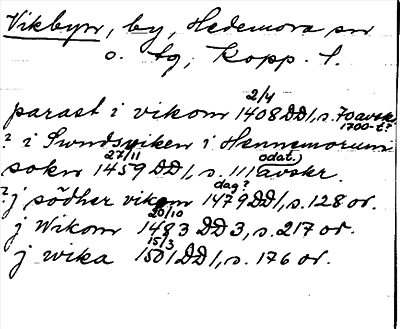 Vikbyn, by, Hedemora sn
o. tg, Kopp. l.
2/4
parast i vikom 1408 DD1, s. 70 avskr.
1700-t?
? i Swndsviken i Hennemorum
27/11 odat.
sokn 1459 DD1, s. 111 avskr.
dag?
? j södher vikom 1479 DD1, s. 128 or.
20/10
j Wikom 1483 DD3, s. 217 or.
15/3
j wika 1501 DD1, s. 176 or.